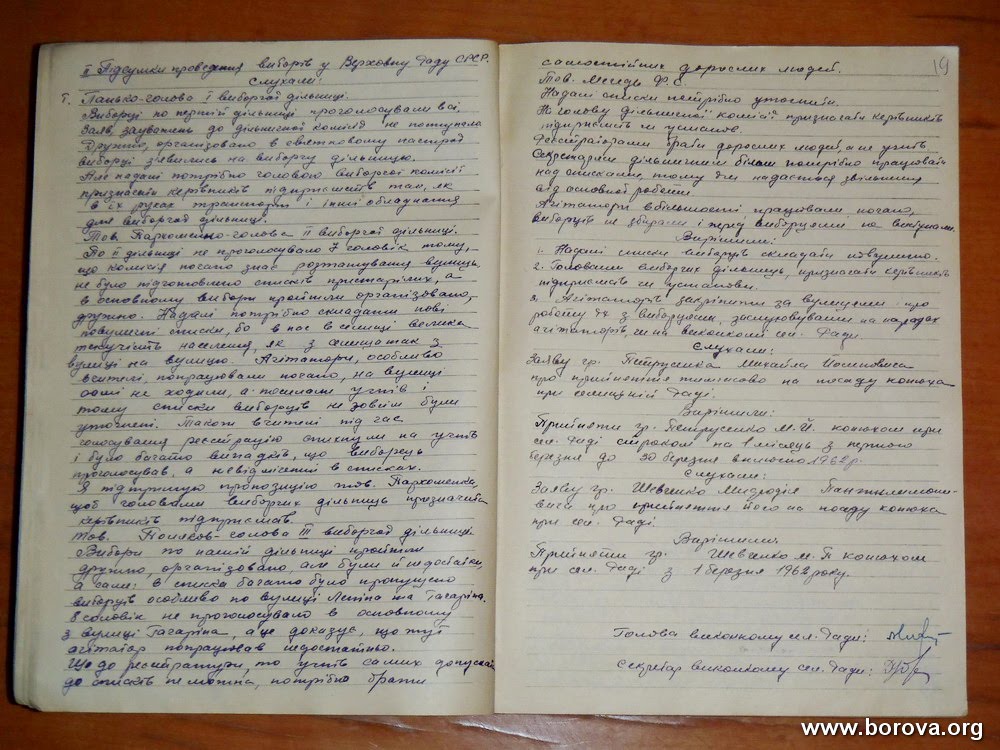 ІІ Підсумки проведення виборів у Верховну Раду СРСР.
Слухали:
Т. Панько-голова І виборчої дільниці.
Виборці по першій дільниці проголосували всі
Заяв, зауважень до дільничної комісії не поступало
Дружно, організовано в святковому настрої
виборці з'явились на виборчу дільницю.
Але надалі потрібно головою виборчої комісії
призначати керівників підприємств так, як
в їх руках транспорт і інші обладнання
для виборчої дільниці.
Тов. Пархоменко-голова ІІ виборчої дільниці.
По ІІ дільниці не проголосувало 7 чоловік тому,
що комісія погано знає розташування вулиць.
не було підготовлено списків престарілих, а
в основному вибори пройшли організовано,
дружно. Надалі потрібно складати нові
повуличні списки, бо в нас в селищі велика
текучість населення, як з селища так з
вулиці на вулицю. Агітатори, особливо
вчителі, попрацювали погано, на вулиці
самі не ходили, а посилали учнів і
тому списки виборців не зовсім були
уточнені. Також вчителі під час
голосування реєстрацію спихнули на учнів
і було багато випадків, що виборець
проголосував, а невідмічені в списках.
Я підтримую пропозицію тов. Пархоменка,
щоб головами виборчих дільниць призначати
керівників підприємств.
Тов. Поляков-голова ІІІ виборчої дільниці
Вибори по нашій дільниці пройшли
дружно, організовано, але були й недостатки,
а саме: в списках багато було пропущено
виборців особливо по вулиці Леніна та Гагаріна.
8 чоловік не проголосувало в основному
з вулиці Гагаріна, а це доказує, що тут
агітатор попрацював недостатньо.
Що до реєстратури, то учнів самих допускати
до списків не можна, потрібно брати
19
самостійних дорослих людей.
Тов. Мечедь Ф. С.
Надалі списки потрібно уточнити.
То голову дільничної комісії призначати керівників
підприємств чи установ.
Реєстраторами брати дорослих людей, а не учнів
Секретарям дільничним більш потрібно працювати
над списками, тому їм надається звільнення
від основної роботи.
Агітатори в більшості працювали погано,
виборців не збирали і перед виборцями не виступали.
Вирішили:
1. Надалі списки виборців складати повулично.
2. Головами виборчих дільниць, призначати керівників
підприємств чи установи.
3. Агітаторів закріпити за вулицями - про
роботу їх з виборцями, заслуховувати на нарадах
агітаторів чи на виконкомі сел. Ради.
Слухали:
Заяву гр. Петрусенка Михайла Йосиповича
про прийняття тимчасово на посаду конюха
при селищній Раді.
Вирішили:
Прийняти гр. Петрусенко М. Й. конюхом при
сел. Раді строком на 1 місяць з першого
березня до 30 березня включно 1962 р.
Слухали:
Заяву гр. Шевченко Мефодія Пантелимоно-
вича про прийняття його на посаду конюха
при сел. Раді.
Вирішили
Прийняти гр. Шевченко М. П. конюхом
при сел. Раді з 1 березня 1962 року.
Голова виконкому сел. Ради:
Секретар виконкому сел. Ради:
www.borova.org